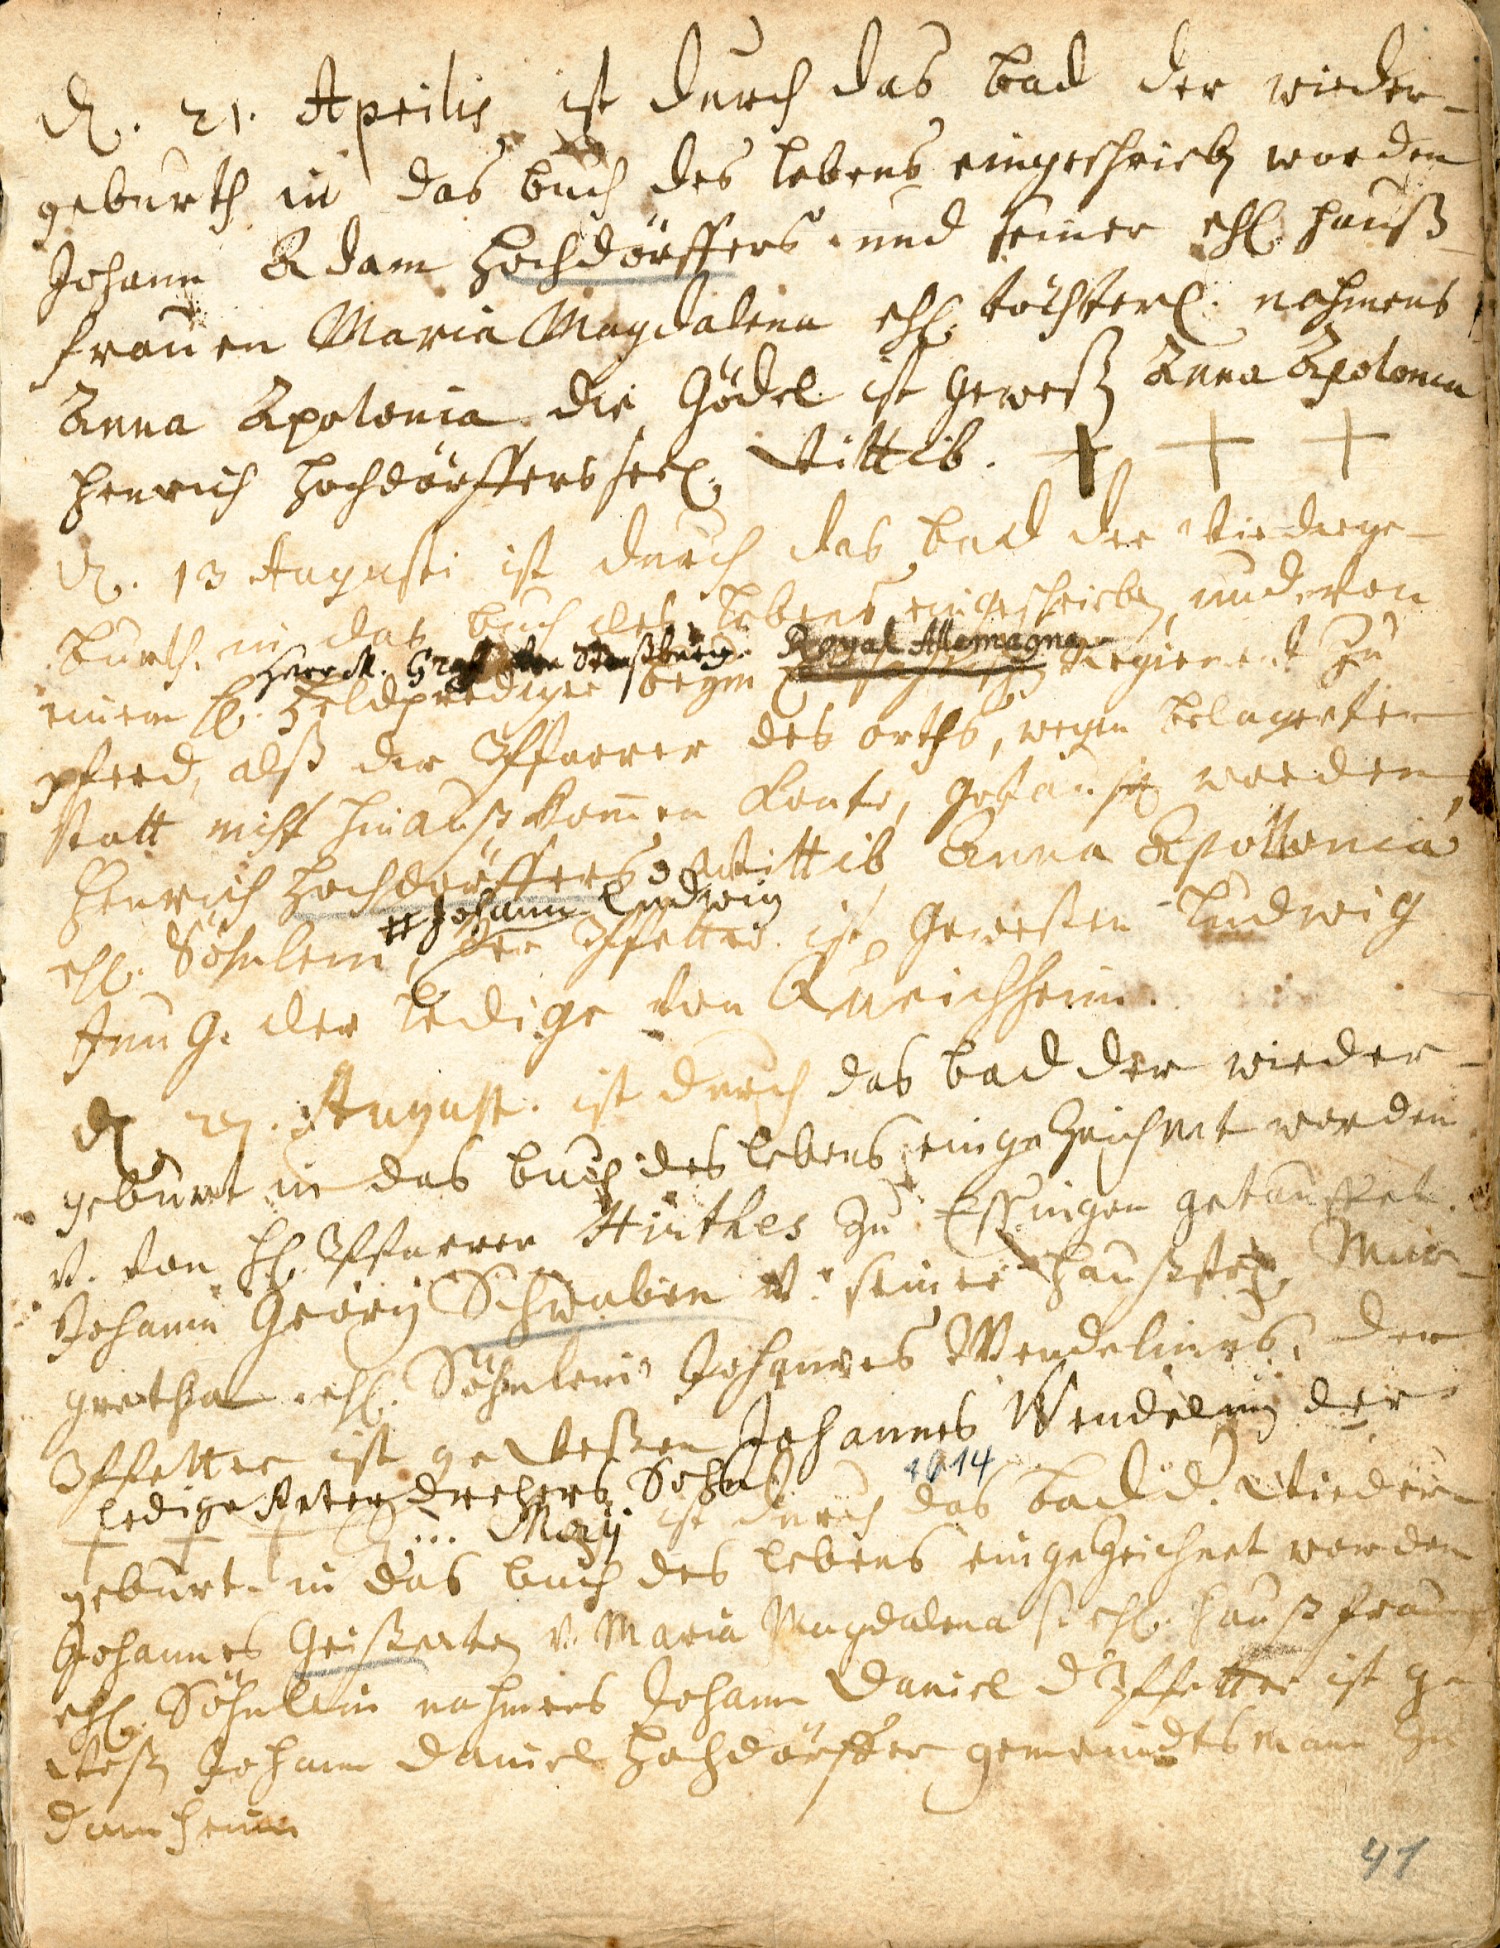 d. 21. Aprilis ist durch das bad der wieder-
geburth in das buch des lebens eingeschrieben worden
Johann Adam Hochdörffers und seiner ehl. hauß-
frauen Maria Magdalena ehl. töchterl. nahmens
Anna Apolonia die Gödel ist geweßen Anna Apolonia
Henrich Hochdörffers seel. Wittib. + + +
d. 13 Augusti ist durch das bad der Wiederge-
burth in das buch des lebens eingeschrieben, und von
Herrn Graff von Straßburg Royal Allemagne
einem H. Feldprediger Regiement zu
pferd, alß der Pfarrer des orths, wegen belagerter
statt nicht hinauß komen konte, getaufft worden,
Henrich Hochdörffers Wittib Anna Apollonia
# Johann Ludwig
ehl. Söhnlein, der Pfetter ist geweßen Ludwig
Jung. der ledige von Queichheim.
d. 27. August. ist durch das bad der wieder-
geburt in das buch des lebens eingezeichnet worden
v. von H. Pfarrer Hürthes zu Essingen getauffet.
Johann Georg Schwaben v. seiner haußfr. Mar-
gretha ehl. Söhnlein Johannes Wendelinus, der
Pfetter ist geweßen Johannes Wendeling der
ledige Peter Drehers Sohn
1714
... Maij ist durch das bad d. Wieder-
geburt in das buch des lebens eingezeichnet worden
Johannes Geißerten v. Maria Magdalena s. ehl. haußfrau
ehl. Söhnlein nahmens Johann Daniel d. Pfetter ist ge
weßen Johann Daniel Hochdörffer gemeindtsmann zu
Damheim
41